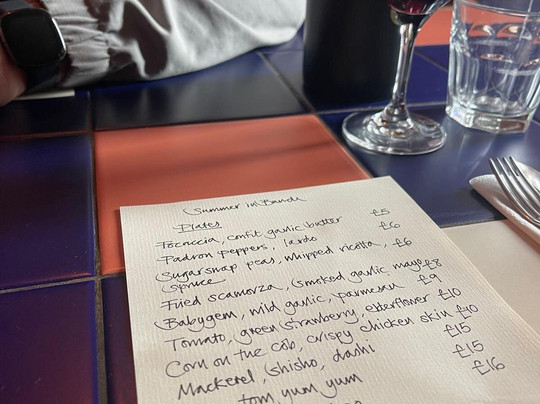 Summer in Banda
Plates
Focaccia, confit garlic butter £5
Padron peppers, lardo £6
Sugarsnap peas, whipped ricotta, £6
Spruce
Fried scamorza, smoked garlic mayo £8
Babygem, mild garlic, parmesan £9
Tomato, green strawberry, elderflower £10
Corn on the cob, crispy chicken skin £10
Mackerel, shisho, dashi £15
tom yum yum £15
£16